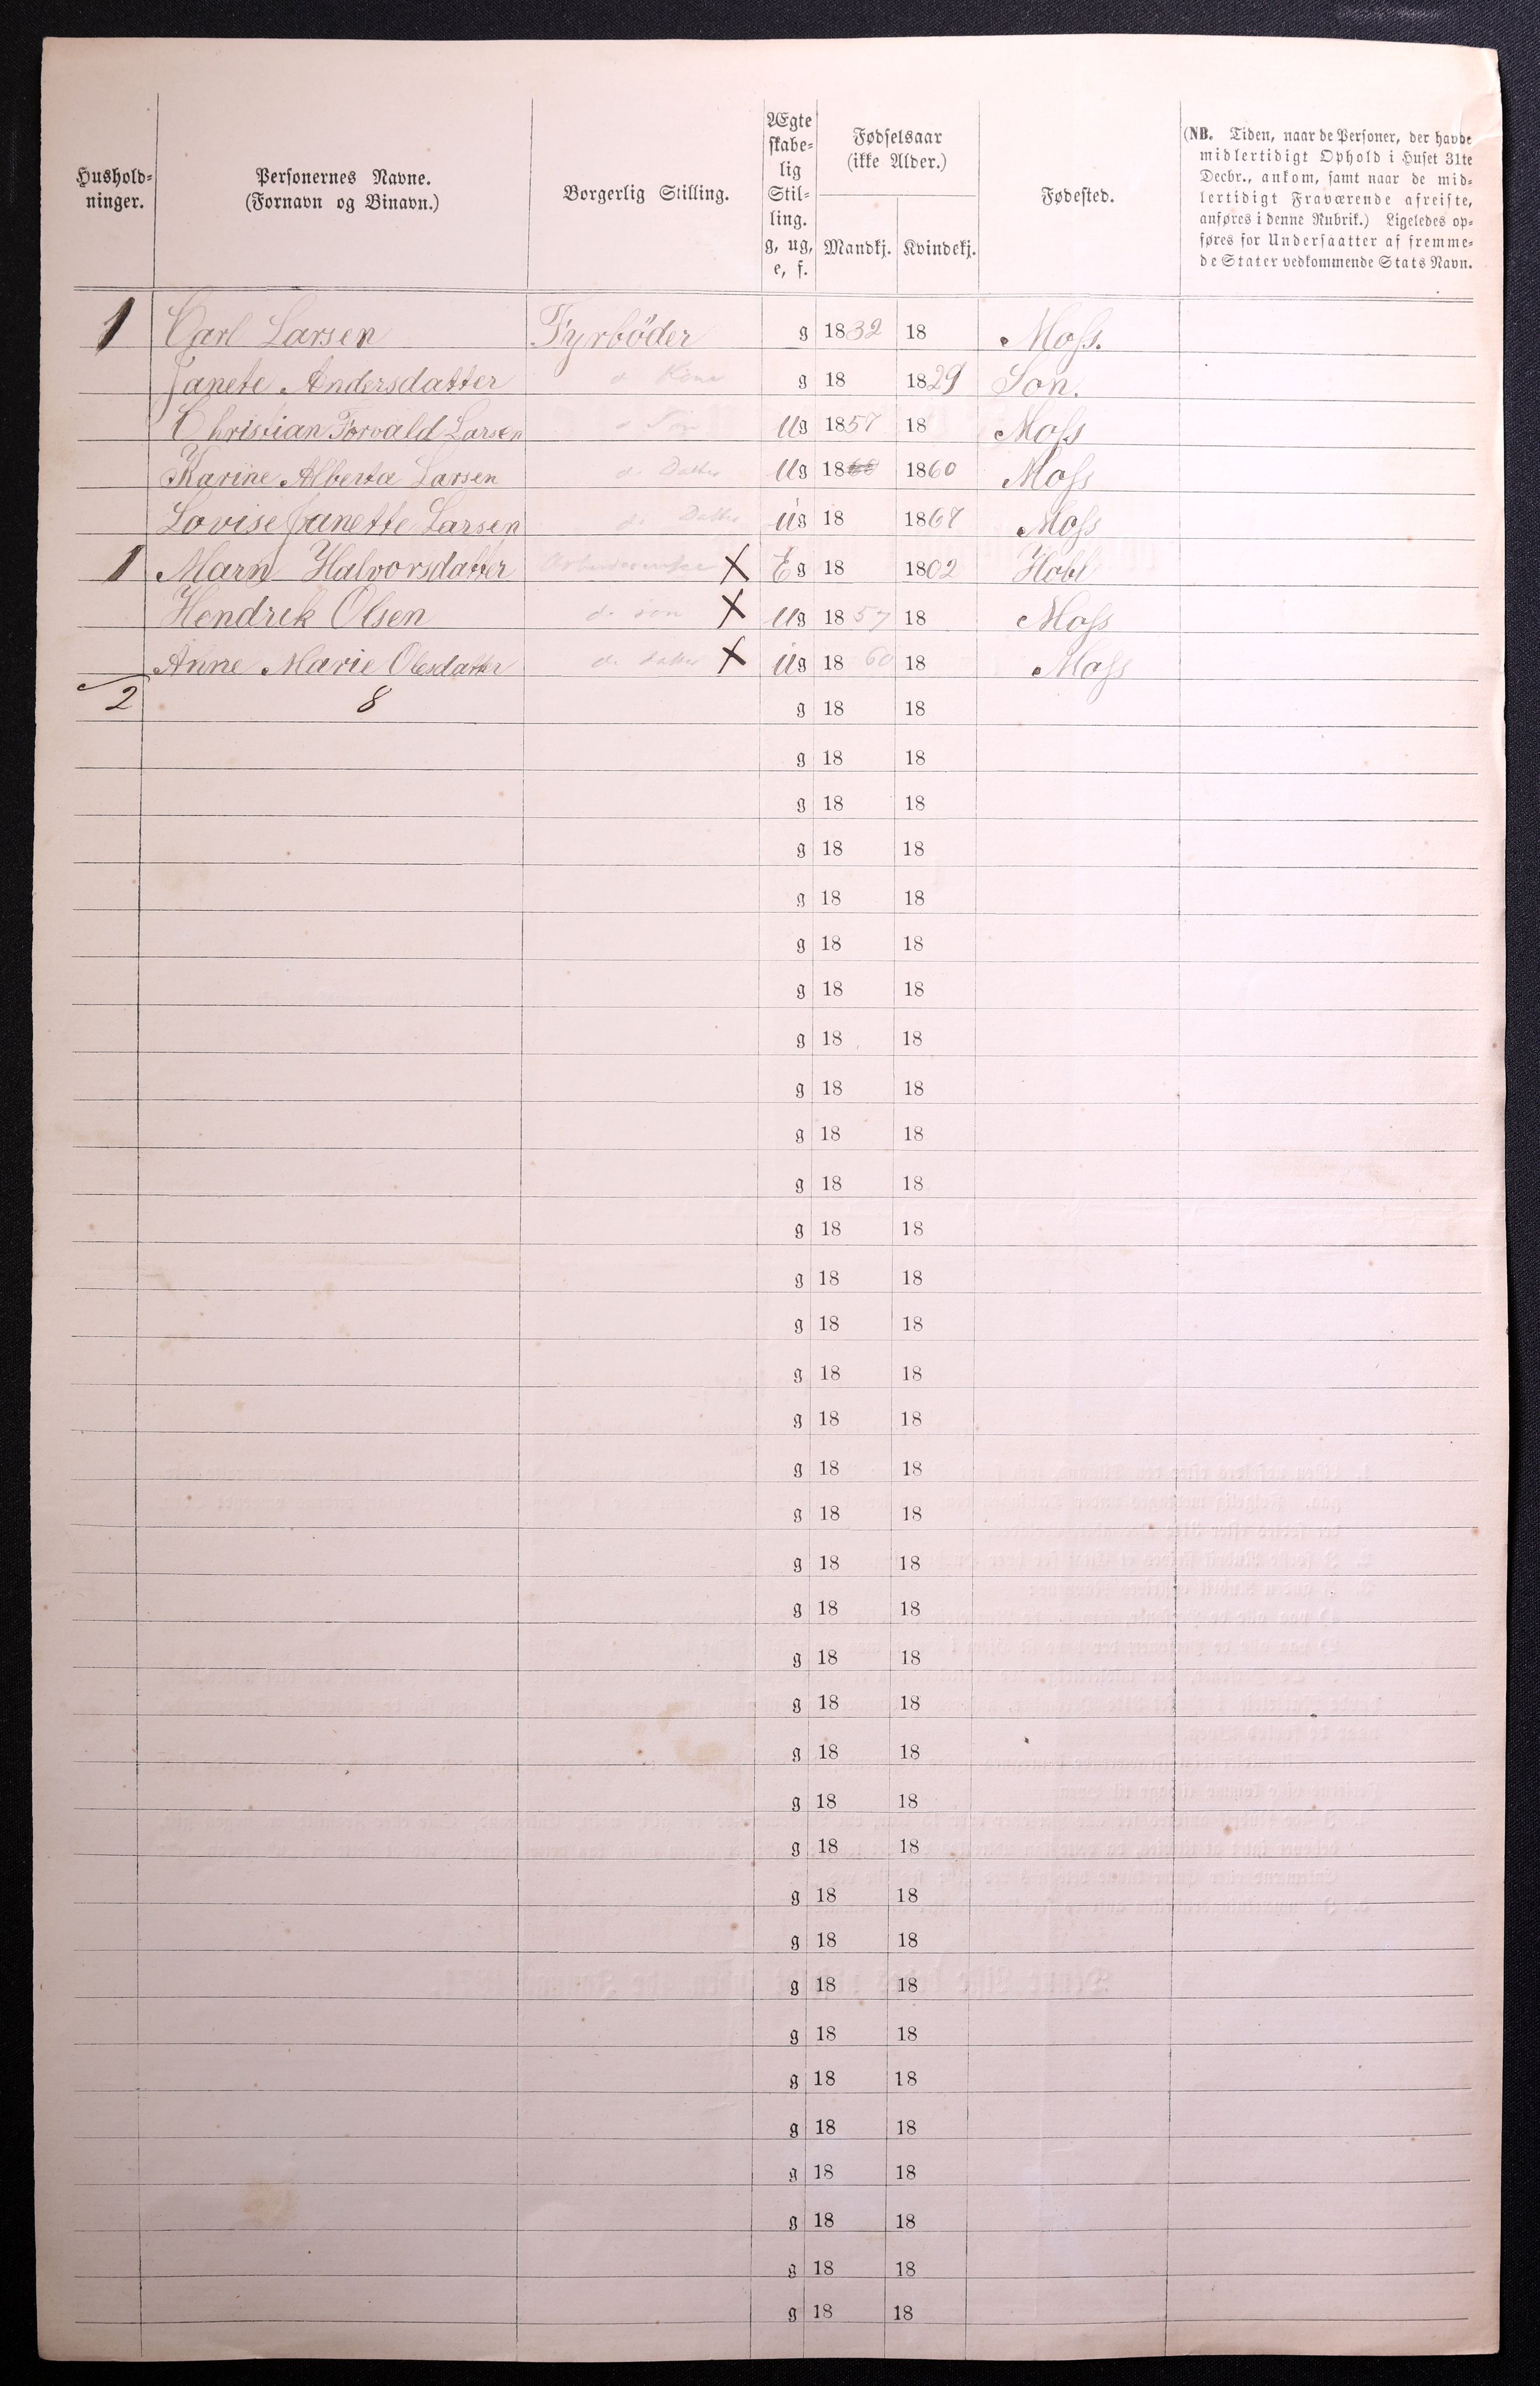 Hushold-
ninger.
Personernes Navne.
(Fornavn og Binavn.)
Borgerlig Stilling.
Ægte
skabe-
lig
Stil-
ling.
g, ug,
e, f.
Fødselsaar
(ikke Alder.)
Mandkj. Kvindekj.
Fødested.
(NB. Tiden, naar de Personer, der havde
midlertidigt Ophold i Huset 31te
Decbr., ankom, samt naar de mid-
lertidigt Fraværende afreiste,
anføres i denne Rubrik.) Ligeledes op-
føres for Undersaatter af fremme-
de Stater vedkommende Stats Navn.
1 Carl Larsen Fyrböder g 1832 18 Moss.
Janete Andersdatter d. Kone g 18 1829 Son.
Christian Torvald Larsen d. Søn Ug 1857 18 Moss
Karine Alberta Larsen d. Datter Ug 18 1860 Moss
Lovise Janette Larsen d. Datter Ug 18 1867 Moss
1 Marn Halvorsdatter X Eg 18 1802 Hobl
Hendrik Olsen d. søn X Ug 1857 18 Moss
Anne Marie Olesdatter d. datter X Ug 1860 18 Moss
2 8 g 18 18
g 18 18
g 18 18
g 18 18
g 18 18
g 18 18
g 18 18
g 18 18
g 18 18
g 18 18
g 18 18
g 18 18
g 18 18
g 18 18
g 18 18
g 18 18
g 18 18
g 18 18
g 18 18
g 18 18
g 18 18
g 18 18
g 18 18
g 18 18
g 18 18
g 18 18
g 18 18
g 18 18
g 18 18
g 18 18
g 18 18
g 18 18
g 18 18
g 18 18
g 18 18